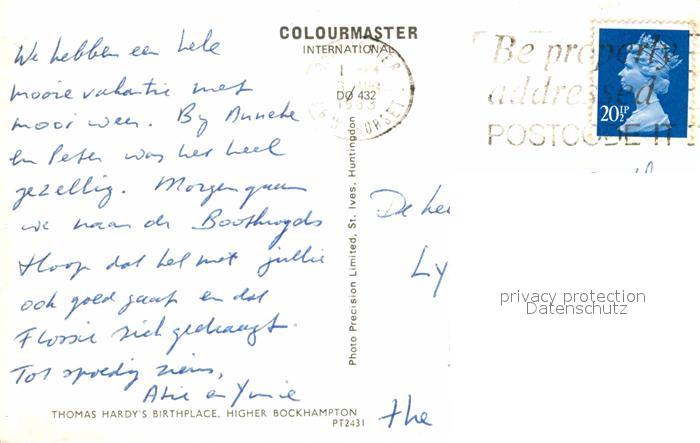 COLOURMASTER
INTERNATIONAL
We hebben een hele
mooie vakantie met
mooi weer. By Anneke
en Peter was het heel
gezellig. Morgen gaan
we naar de
Hoop dat het met jullie
ook goed gaat en dat
Flossie zich gedraagt.
Tot spoedig ziens,
en
THOMAS HARDY'S BIRTHPLACE, HIGHER BOCKHAMPTON
PT2431
DØ 432
1983
DORSET
Photo Precision Limited, St. Ives, Huntingdon
Be properly
addressed
POSTCODE IT
20½P
De
Ly
the
privacy protection
Datenschutz